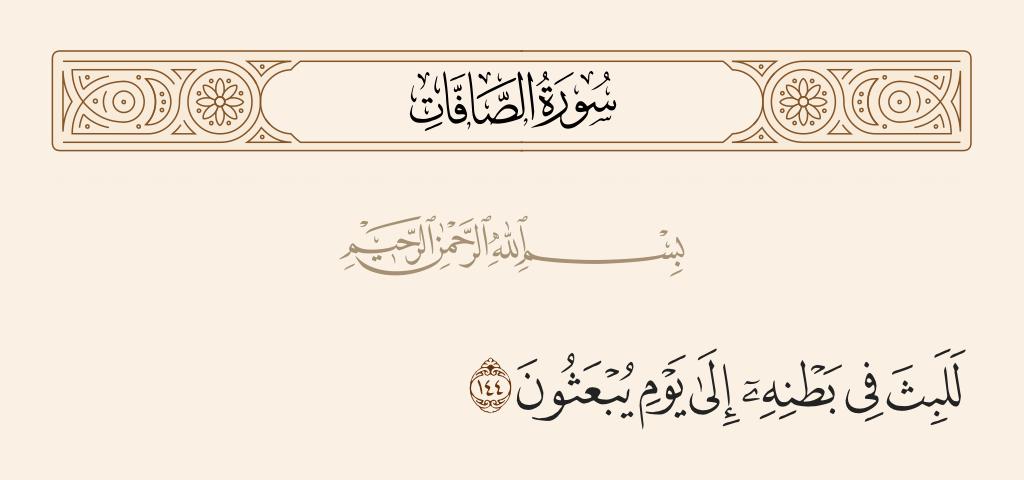 سُورَةُ الصَّافَّاتِ
بِسْمِ ٱللَّهِ ٱلرَّحْمَٰنِ ٱلرَّحِيمِ
لَلَبِثَ فِى بَطْنِهِۦٓ إِلَىٰ يَوْمِ يُبْعَثُونَ ١٤٤